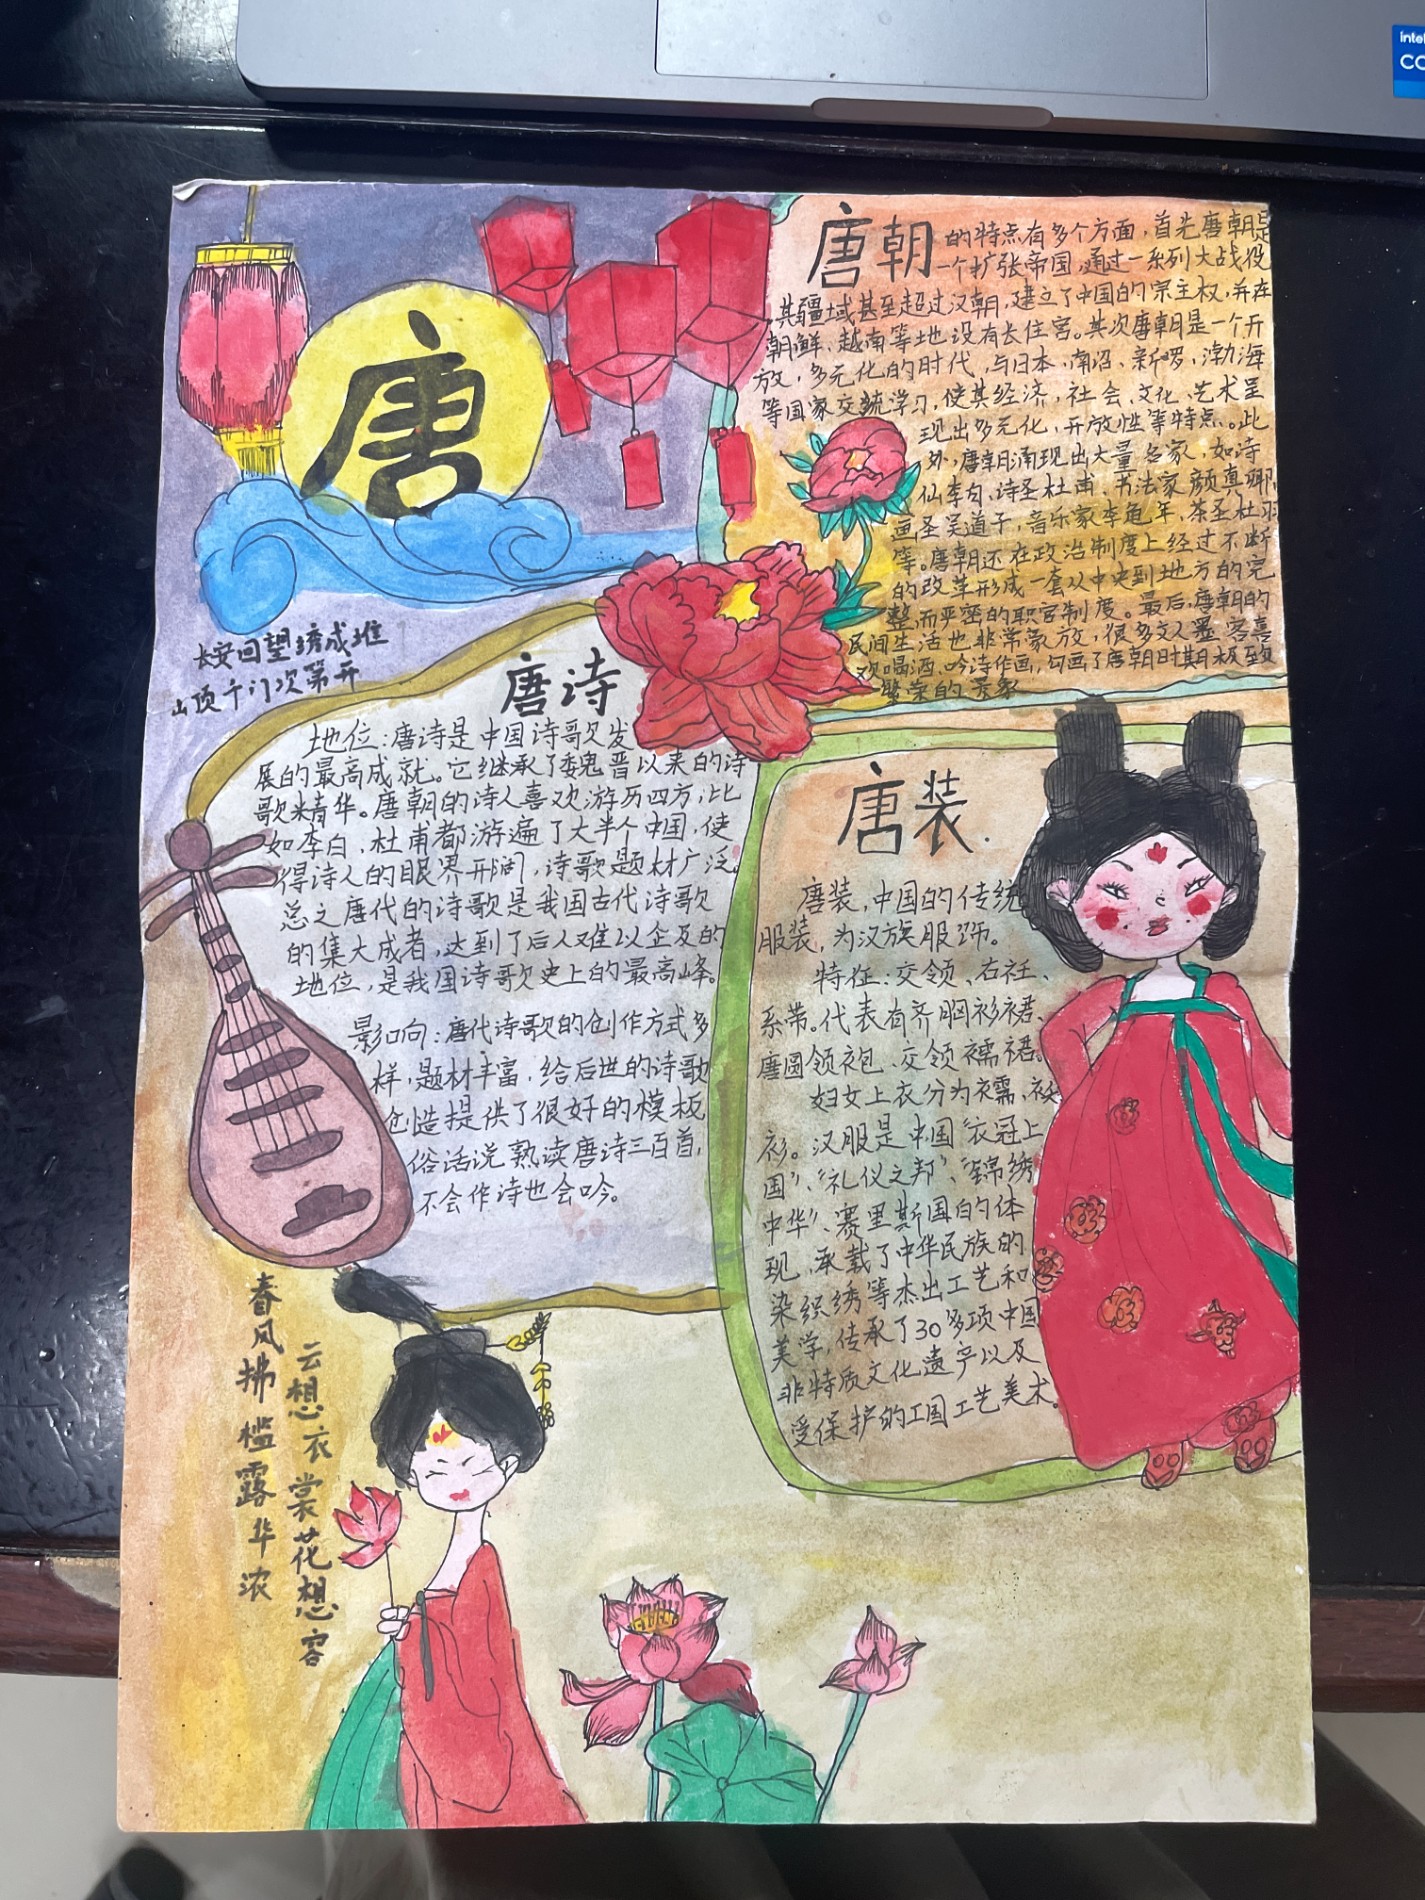 intel
CO
唐
长安回望绣成堆
山顶千门次第开
唐朝
的特点有多个方面,首先唐朝是
一个扩张帝国,通过一系列大战役
其疆域甚至超过汉朝,建立了中国的宗主权,并在
朝鲜、越南等地设有长住官。其次唐朝是一个开
放,多元化的时代,与日本、南诏、新罗,渤海
等国家交流学习,使其经济,社会、文化、艺术呈
现出多元化,开放性等特点。此
外,唐朝涌现出大量名家,如诗
仙李白、诗圣杜甫、书法家颜真卿,
画圣吴道子,音乐家李龟年,茶圣杜羽
等。唐朝还在政治制度上经过不断
的改革形成一套从中央到地方的完
整而严密的职官制度。最后,唐朝的
民间生活也非常豪放,很多文人墨客喜
欢喝酒、吟诗作画,勾画了唐朝时期极致
繁荣的景象
唐诗
地位:唐诗是中国诗歌发
展的最高成就。它继承了魏晋以来的诗
歌精华。唐朝的诗人喜欢游历四方,比
如李白,杜甫都游遍了大半个中国,使
得诗人的眼界开阔,诗歌题材广泛。
总之唐代的诗歌是我国古代诗歌
的集大成者,达到了后人难以企及的
地位,是我国诗歌史上的最高峰。
影响:唐代诗歌的创作方式多
样,题材丰富,给后世的诗歌
创造提供了很好的模板
俗话说熟读唐诗三百首,
不会作诗也会吟。
唐装.
唐装,中国的传统
服装,为汉族服饰。
特征:交领、右衽、
系带。代表有齐胸衫裙、
唐圆领袍、交领襦裙。
妇女上衣分为襦、袄
衫。汉服是中国“衣冠上
国”、“礼仪之邦”、“锦绣
中华”、赛里斯国的体
现,承载了中华民族的
染织绣等杰出工艺和
美学,传承了30多项中国
非特质文化遗产以及
受保护的工国工艺美术。
云想衣裳花想容
春风拂槛露华浓